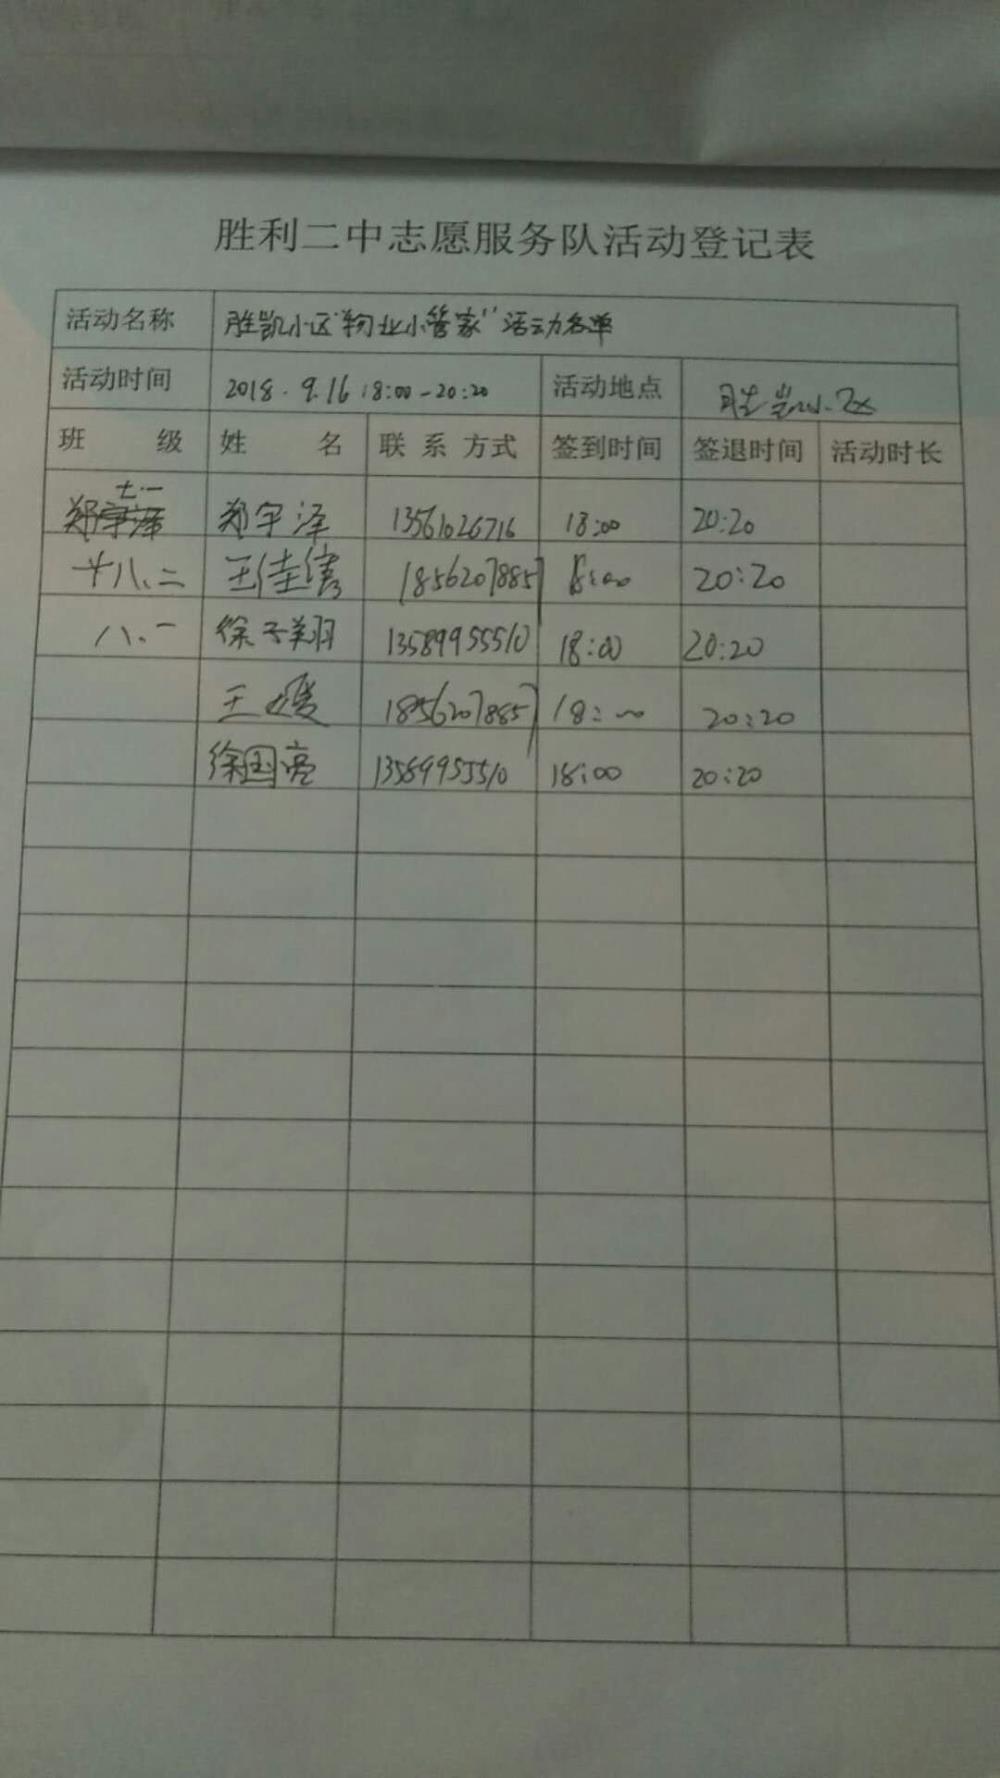 胜利二中志愿服务队活动登记表
活动名称 胜凯小区"物业小管家"活动名单
活动时间 2018.9.16 18:00-20:20 活动地点 胜凯小区
班 级 姓 名 联系方式 签到时间 签退时间 活动时长
七.一 郑宇泽 13561026716 18:00 20:20
十八、二 王佳 18562078857 18:00 20:20
八、一 徐子翔 13589955510 18:00 20:20
王媛 18562078857 18:00 20:20
徐国亮 13589955510 18:00 20:20